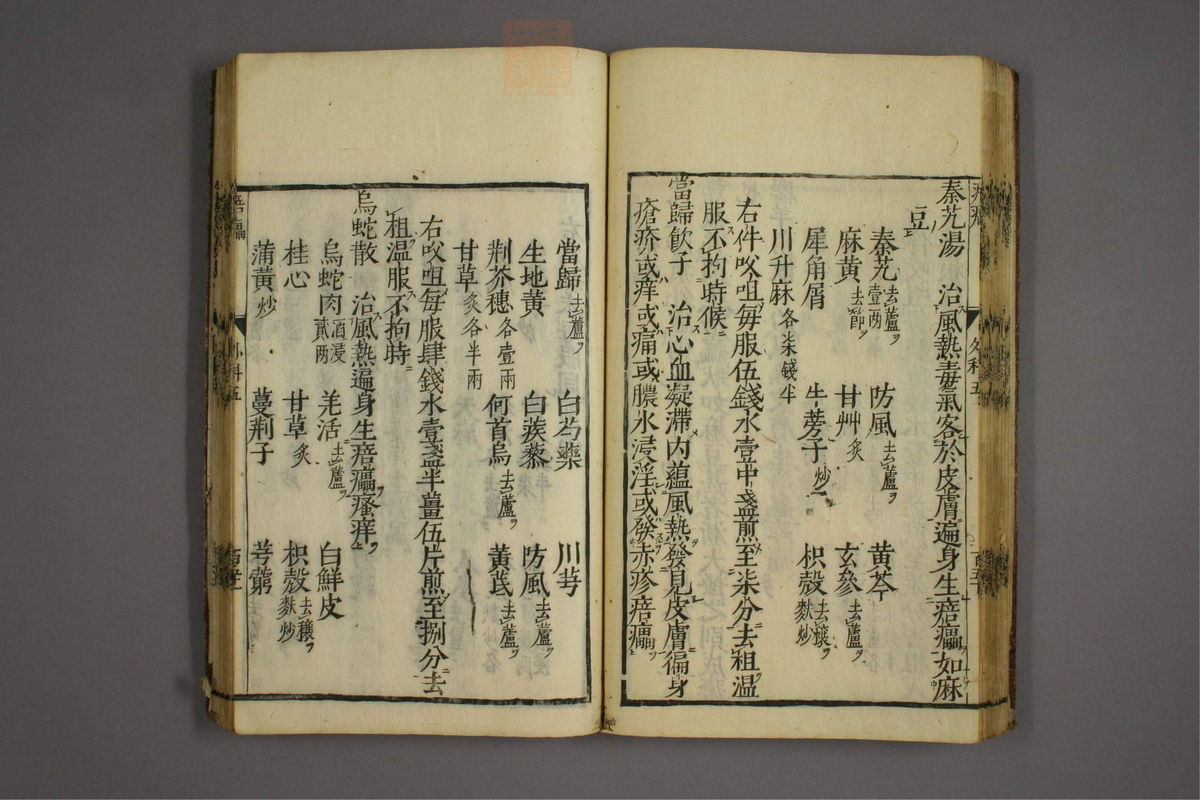 秦艽湯 治風熱毒氣客於皮膚遍身生㾦㿔如麻
豆
秦艽去蘆壹兩 防風去蘆 黄芩
麻黄去節 甘艸炙 玄參去蘆
犀角屑 牛蒡子炒 枳殼去穰麩炒
川升麻各柒錢半
右件㕮咀每服伍錢水壹中盞煎至柒分去柤温
服不拘時候
當歸飲子 治心血凝滯内蘊風熱發見皮膚徧身
瘡疥或痒或痛或膿水浸淫或發赤疹㾦㿔
當歸去蘆 白芍藥 川芎
生地黄 白蒺藜 防風去蘆
荆芥穗各壹兩 何首烏去蘆 黄芪去蘆
甘草炙各半兩
右㕮咀每服肆錢水壹盞半薑伍片煎至捌分去
柤温服不拘時
烏蛇散 治風熱遍身生㾦㿔瘙痒
烏蛇肉酒浸貳两 羌活去蘆 白鮮皮
桂心 甘草炙 枳殼去穰麩炒
蒲黄炒 蔓荆子 芎藭
外科五